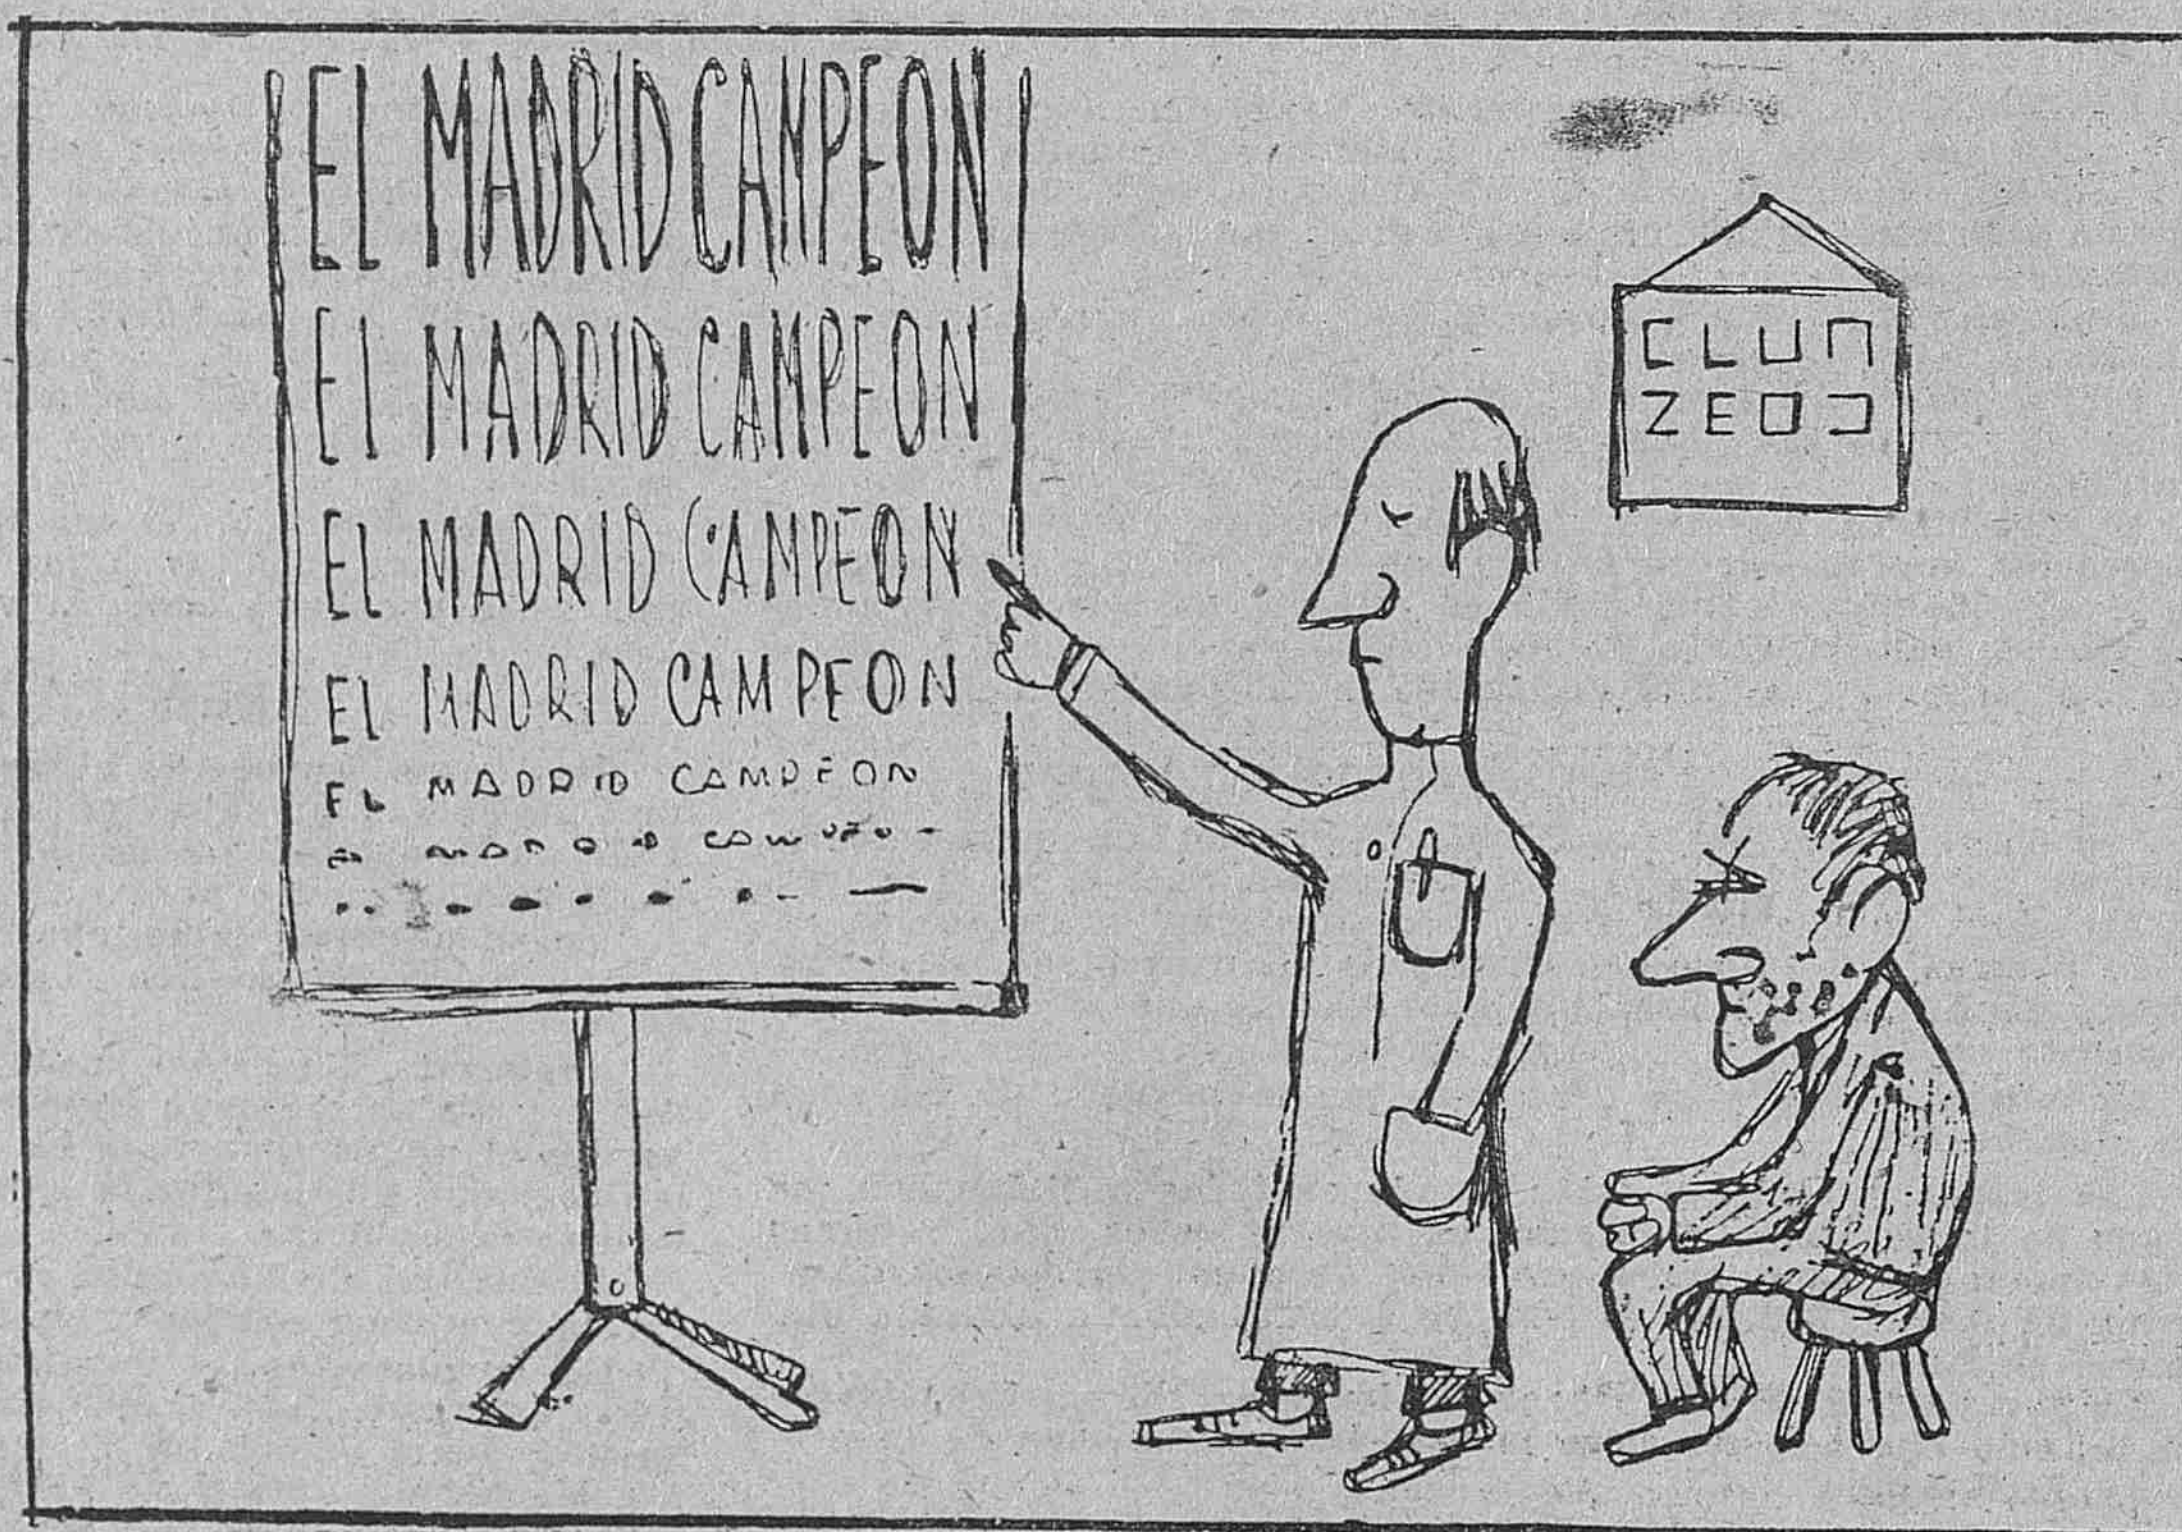 EL MADRID CAMPEON
EL MADRID CAMPEON
EL MADRID CAMPEON
EL MADRID CAMPEON
EL MADRID CAMPEON
CLUП
ZEOC